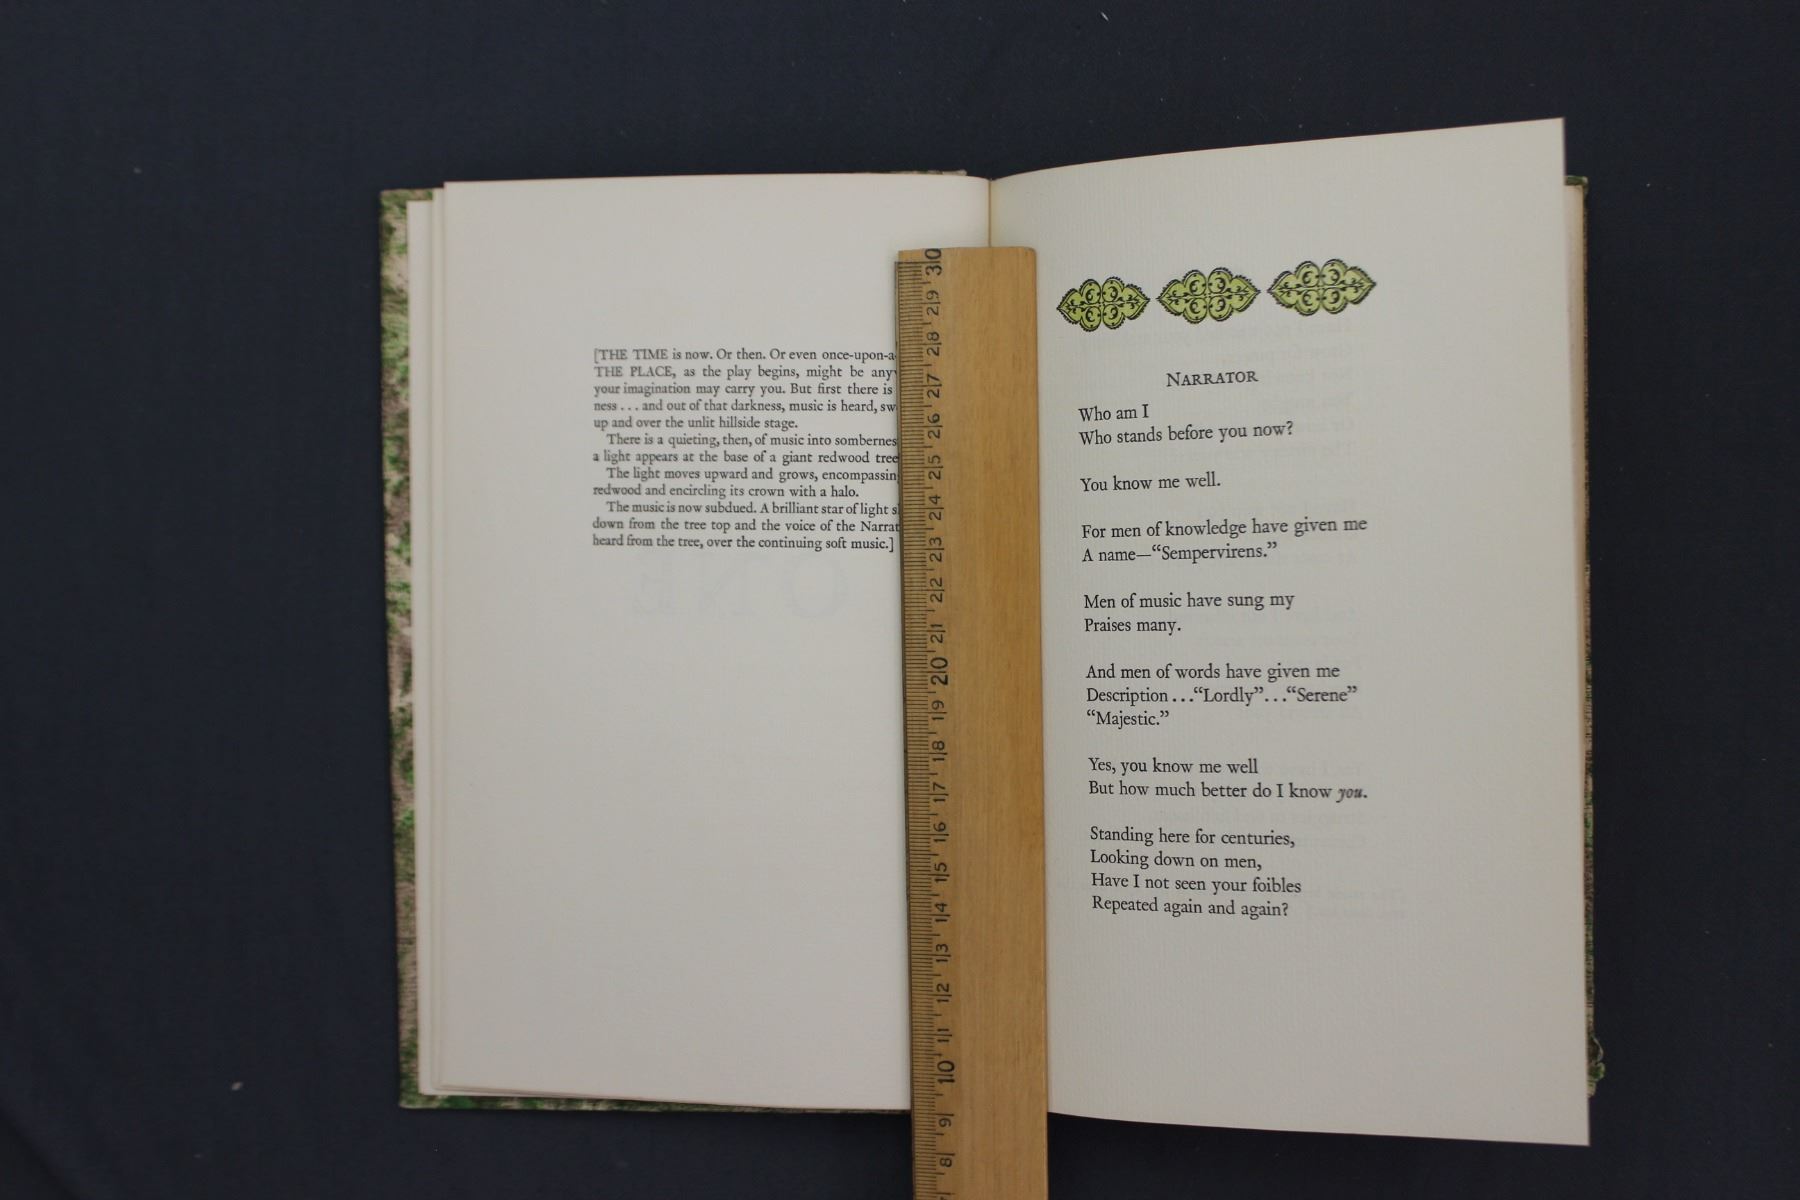 [THE TIME is now. Or then. Or even once-upon-a-
THE PLACE, as the play begins, might be any
your imagination may carry you. But first there is
ness . . . and out of that darkness, music is heard, sw
up and over the unlit hillside stage.
There is a quieting, then, of music into sombernes
a light appears at the base of a giant redwood tree
The light moves upward and grows, encompassin
redwood and encircling its crown with a halo.
The music is now subdued. A brilliant star of light s
down from the tree top and the voice of the Narrat
heard from the tree, over the continuing soft music.]
ONE
30
29
28
27
26
25
24
23
22
21
20
19
18
17
16
15
14
13
12
11
10
9
8
NARRATOR
Who am I
Who stands before you now?
You know me well.
For men of knowledge have given me
A name—“Sempervirens.”
Men of music have sung my
Praises many.
And men of words have given me
Description . . . “Lordly” . . . “Serene”
“Majestic.”
Yes, you know me well
But how much better do I know you.
Standing here for centuries,
Looking down on men,
Have I not seen your foibles
Repeated again and again?